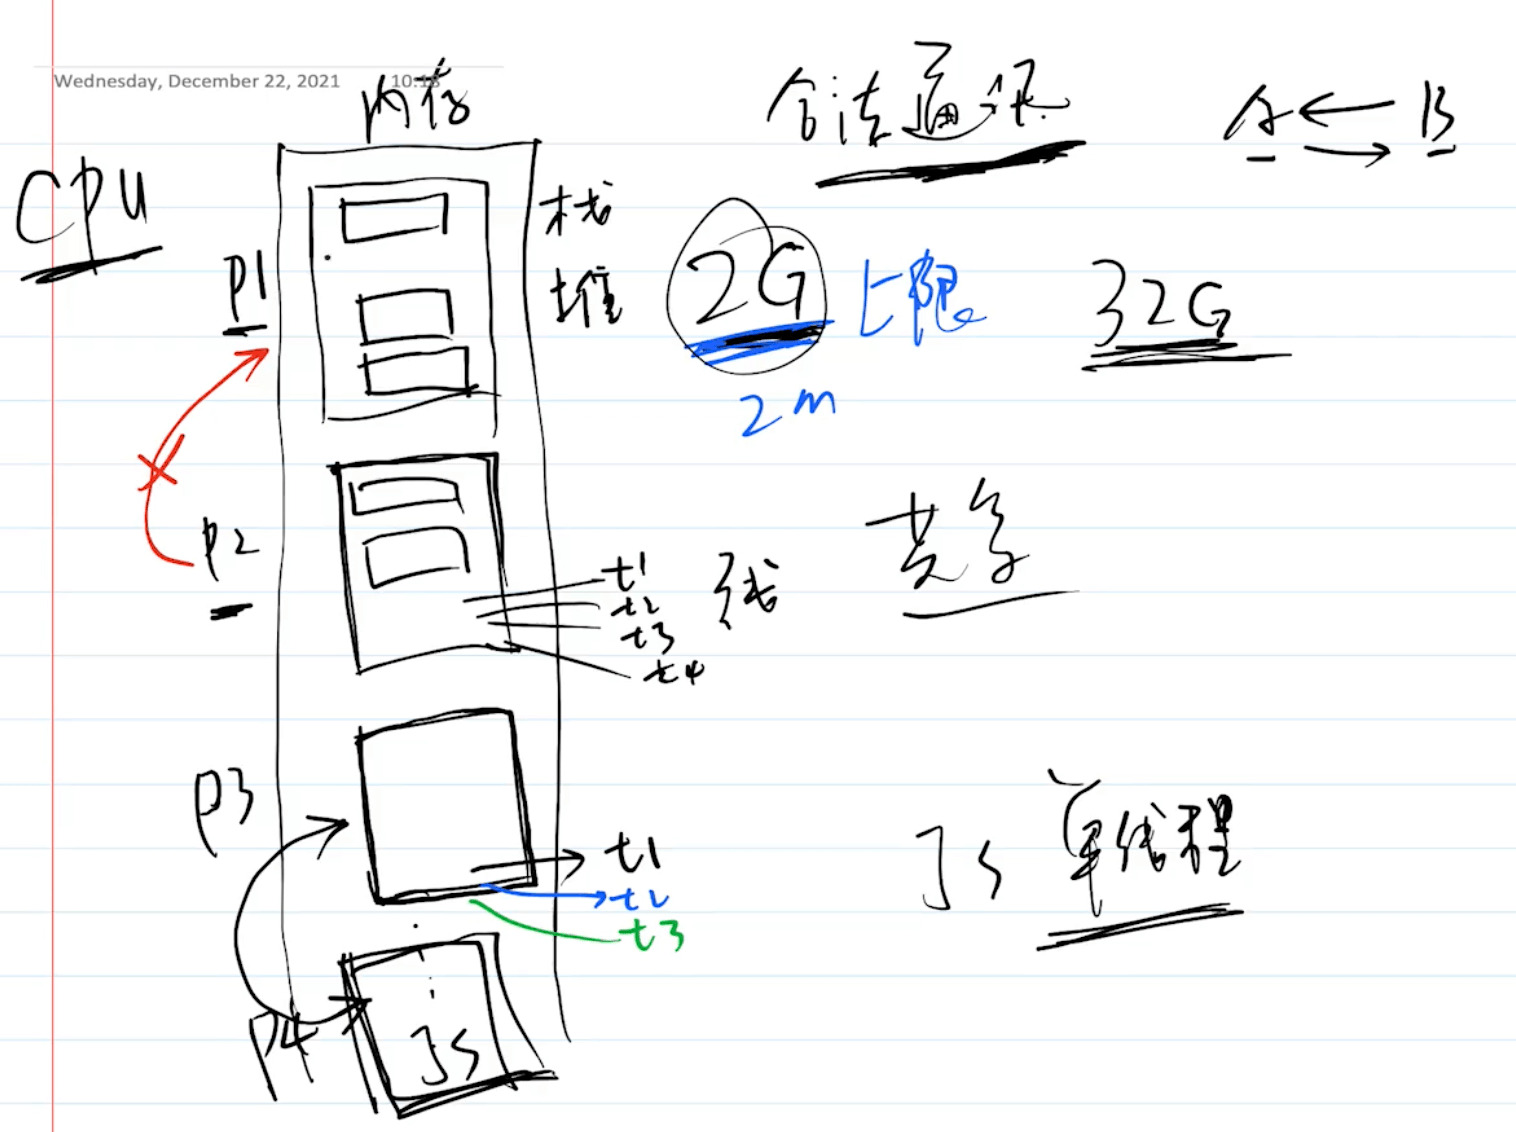 Wednesday, December 22, 2021 10:18
内存
合法通讯
A B
CPU
栈
P1
堆
2G 上限 32G
2m
P2
t1
t2 线 共享
t3
t4
P3
JS 单线程
t1
t2
t3
P4
JS